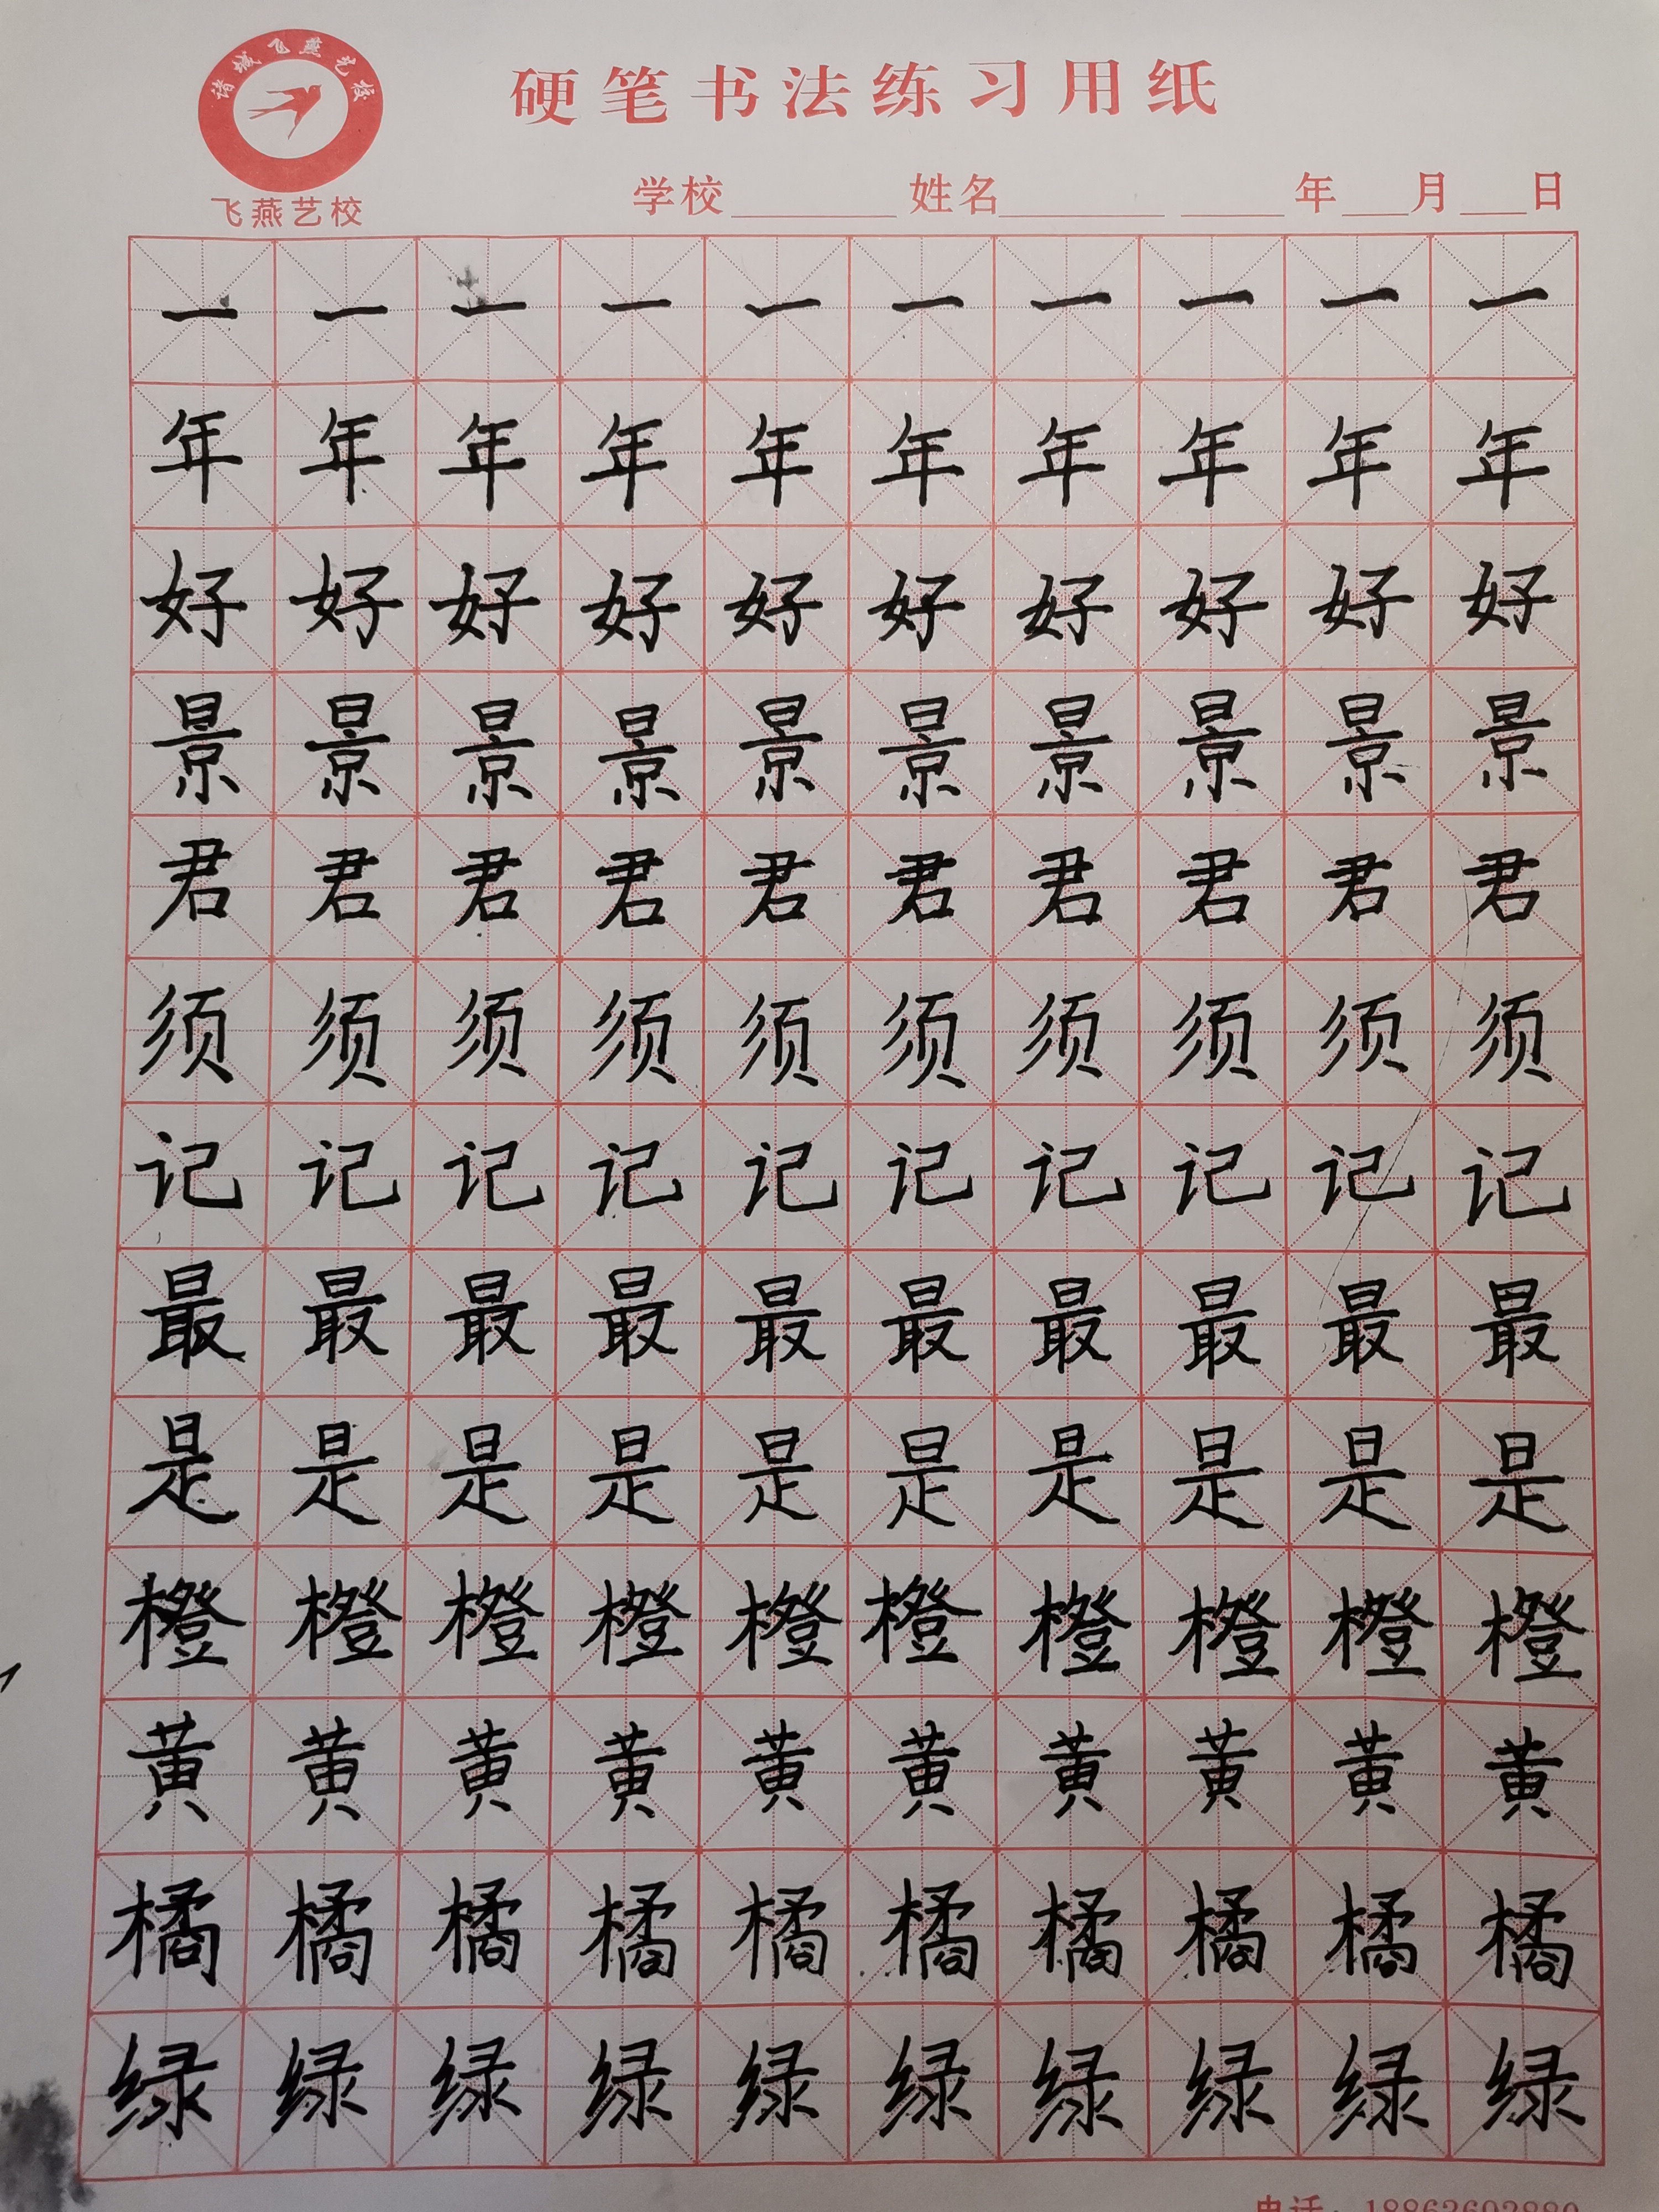 诸城飞燕艺校
飞燕艺校
硬笔书法练习用纸
学校 姓名 年 月 日
一 一 一 一 一 一 一 一 一 一
年 年 年 年 年 年 年 年 年 年
好 好 好 好 好 好 好 好 好 好
景 景 景 景 景 景 景 景 景 景
君 君 君 君 君 君 君 君 君 君
须 须 须 须 须 须 须 须 须 须
记 记 记 记 记 记 记 记 记 记
最 最 最 最 最 最 最 最 最 最
是 是 是 是 是 是 是 是 是 是
橙 橙 橙 橙 橙 橙 橙 橙 橙 橙
黄 黄 黄 黄 黄 黄 黄 黄 黄 黄
橘 橘 橘 橘 橘 橘 橘 橘 橘 橘
绿 绿 绿 绿 绿 绿 绿 绿 绿 绿
电话：18863692880